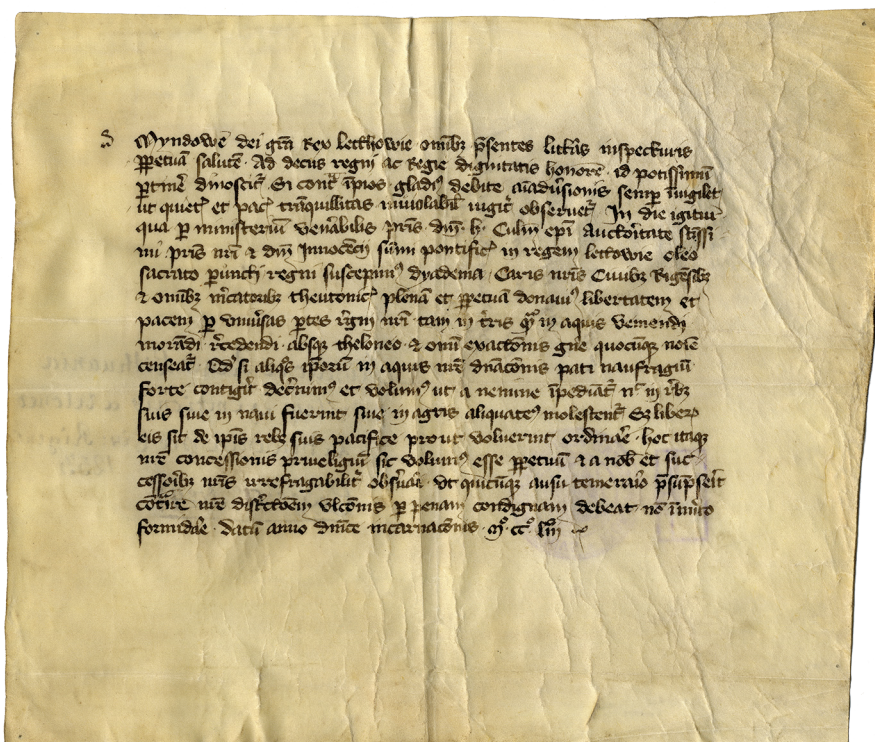 Myndowē dei gr̄a Rex Letthowie omnib; p̄sentes litt̄as inspecturis
ꝑpetuā salutē · Ad decus regni ac Regie dignitatis honorē · id potissimū
ꝑtinē dinoscit᷑ Si cont᷑ īpios gladiꝰ debite aīadūsionis semꝑ īuigilet
ut quietꝭ et pacꝭ tranquillitas inuiolabilit᷑ iugit᷑ obseruet᷑ · In die igitur
qua ꝑ ministeriū ven̄abilis pr̄is dn̄i · h · Culm̄ ep̄i Auctoritate sc̄issi
mi pr̄is nr̄i ⁊ dn̄i Innocencij sūmi pontificꝭ in regem lettowie oleo
sacrato ꝑuncti regni suscepimꝰ dyadema · Caris nr̄is Ciuib; Rigēsib;
⁊ omīb; m̄catorib; theutonicꝭ plenā et ꝑpetuā donauimꝰ libertatem et
pacem ꝑ vniūsas ꝑtes regni nr̄i tam in t̄ris qͣ in aquis veniendi
morādi r̄cedendi · absq; theloneo · ⁊ om̄i exactōnis gn̄e quocūq; noīe
censeat᷑ · Qd̓ si aliqͦs ip̄orum in aquis nr̄e dn̄acōnis pati naufragiū
forte contigit᷑ decn̄imꝰ et volumꝰ ut a nemine īpediat᷑ nͨ in r̄b;
suis siue in naui fuerint siue in agris aliquatenꝰ molestent᷑ Sed libe᷑
eis sit de ip̄is reb; suis pacifice prout voluerint ordinar̄e · hoc itaq;
nr̄e concessionis priueligiū sic volumꝰ esse ꝑpetuū ⁊ a nob̄ et suc
cessorib; nr̄is irrefragabilit᷑ obs̄uari · Vt quicūq; ausu temerario p̄sūpse̅it
cōt᷑ire nr̄e districtōem vlcōnis ꝑ penam condignam debeat nō īm̄ito
formidar̄e · datū anno dn̄ice incarnacōnis · mͦ · ccͦ · liiiͦ